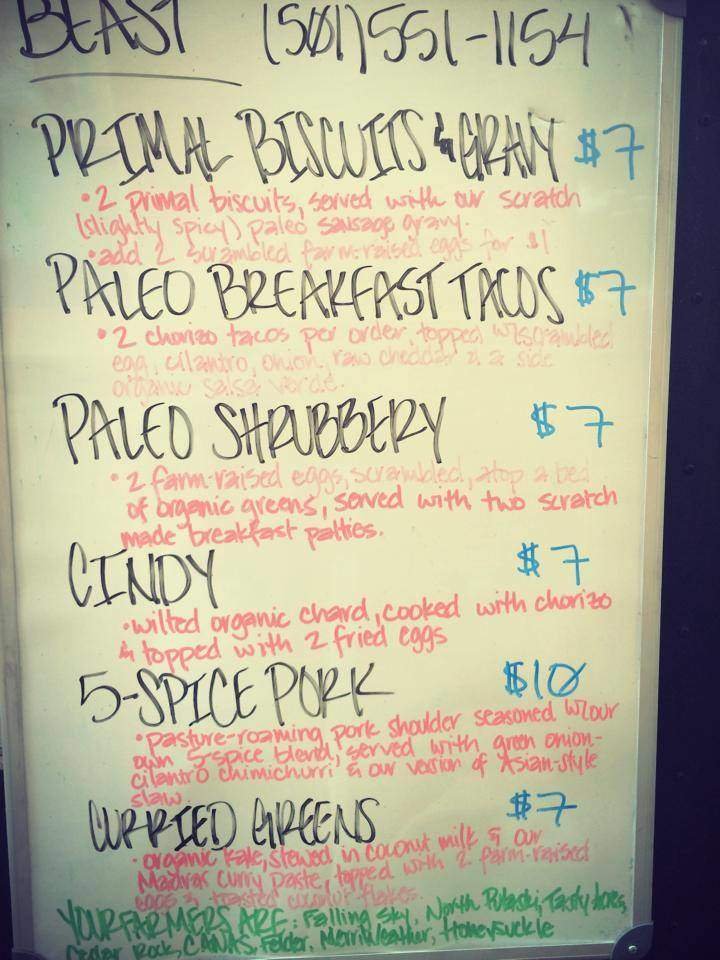 BEAST (501)551-1154
PRIMAL BISCUITS & GRAVY $7
• 2 primal biscuits, served with our scratch
(slightly spicy) paleo sausage gravy.
• add 2 scrambled farm-raised eggs for $1
PALEO BREAKFAST TACOS $7
• 2 chorizo tacos per order, topped w/scrambled
egg, cilantro, onion, raw cheddar & a side
organic salsa verde.
PALEO SHRUBBERY $7
• 2 farm-raised eggs, scrambled, atop a bed
of organic greens, served with two scratch
made breakfast patties.
CINDY $7
• wilted organic chard, cooked with chorizo
& topped with 2 fried eggs
5-SPICE PORK $10
• pasture-roaming pork shoulder seasoned w/our
own 5-spice blend, served with green onion-
cilantro chimichurri & our version of Asian-style
slaw
CURRIED GREENS $7
• organic kale, stewed in coconut milk & our
Madras curry paste, topped with 2 farm-raised
eggs & toasted coconut flakes.
YOUR FARMERS ARE: Falling Sky, North Pulaski, Tasty Acres,
Cedar Rock, CANAS, Felder, Merriweather, Honeysuckle